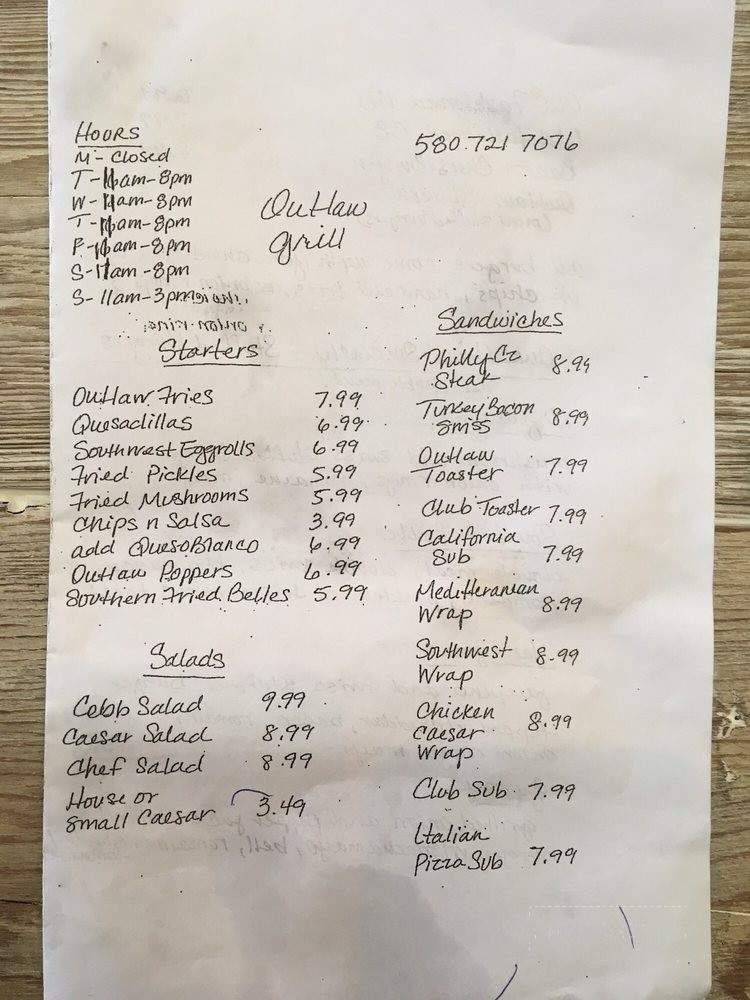 HOURS
M - Closed
T - 11am - 8pm
W - 11am - 8pm
T - 11am - 8pm
F - 11am - 8pm
S - 11am - 8pm
S - 11am - 3pm
580.721 7076
Outlaw
grill
Starters
Outlaw Fries 7.99
Quesadillas 6.99
Southwest Eggrolls 6.99
Fried Pickles 5.99
Fried Mushrooms 5.99
Chips n Salsa 3.99
add Queso Blanco 6.99
Outlaw Poppers 6.99
Southern Fried Belles 5.99
Salads
Cobb Salad 9.99
Caesar Salad 8.99
Chef Salad 8.99
House or
Small Caesar 3.49
Sandwiches
Philly Cz 8.99
Steak
Turkey Bacon 8.99
Swiss
Outlaw
Toaster 7.99
Club Toaster 7.99
California
Sub 7.99
Meditteranian
Wrap 8.99
Southwest 8.99
Wrap
Chicken
Caesar 8.99
Wrap
Club Sub 7.99
Italian
Pizza Sub 7.99